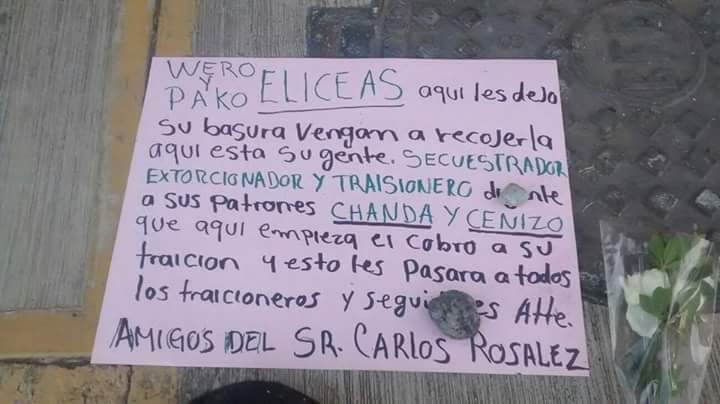 WERO
Y
PAKO ELICEAS aqui les dejo
su basura vengan a recojerla
aqui esta su gente. SECUESTRADOR
EXTORCIONADOR Y TRAISIONERO
a sus patrones CHANDA Y CENIZO
que aqui empieza el cobro a su
traicion y esto les pasara a todos
los traicioneros y Atte.
AMIGOS DEL SR. CARLOS ROSALEZ